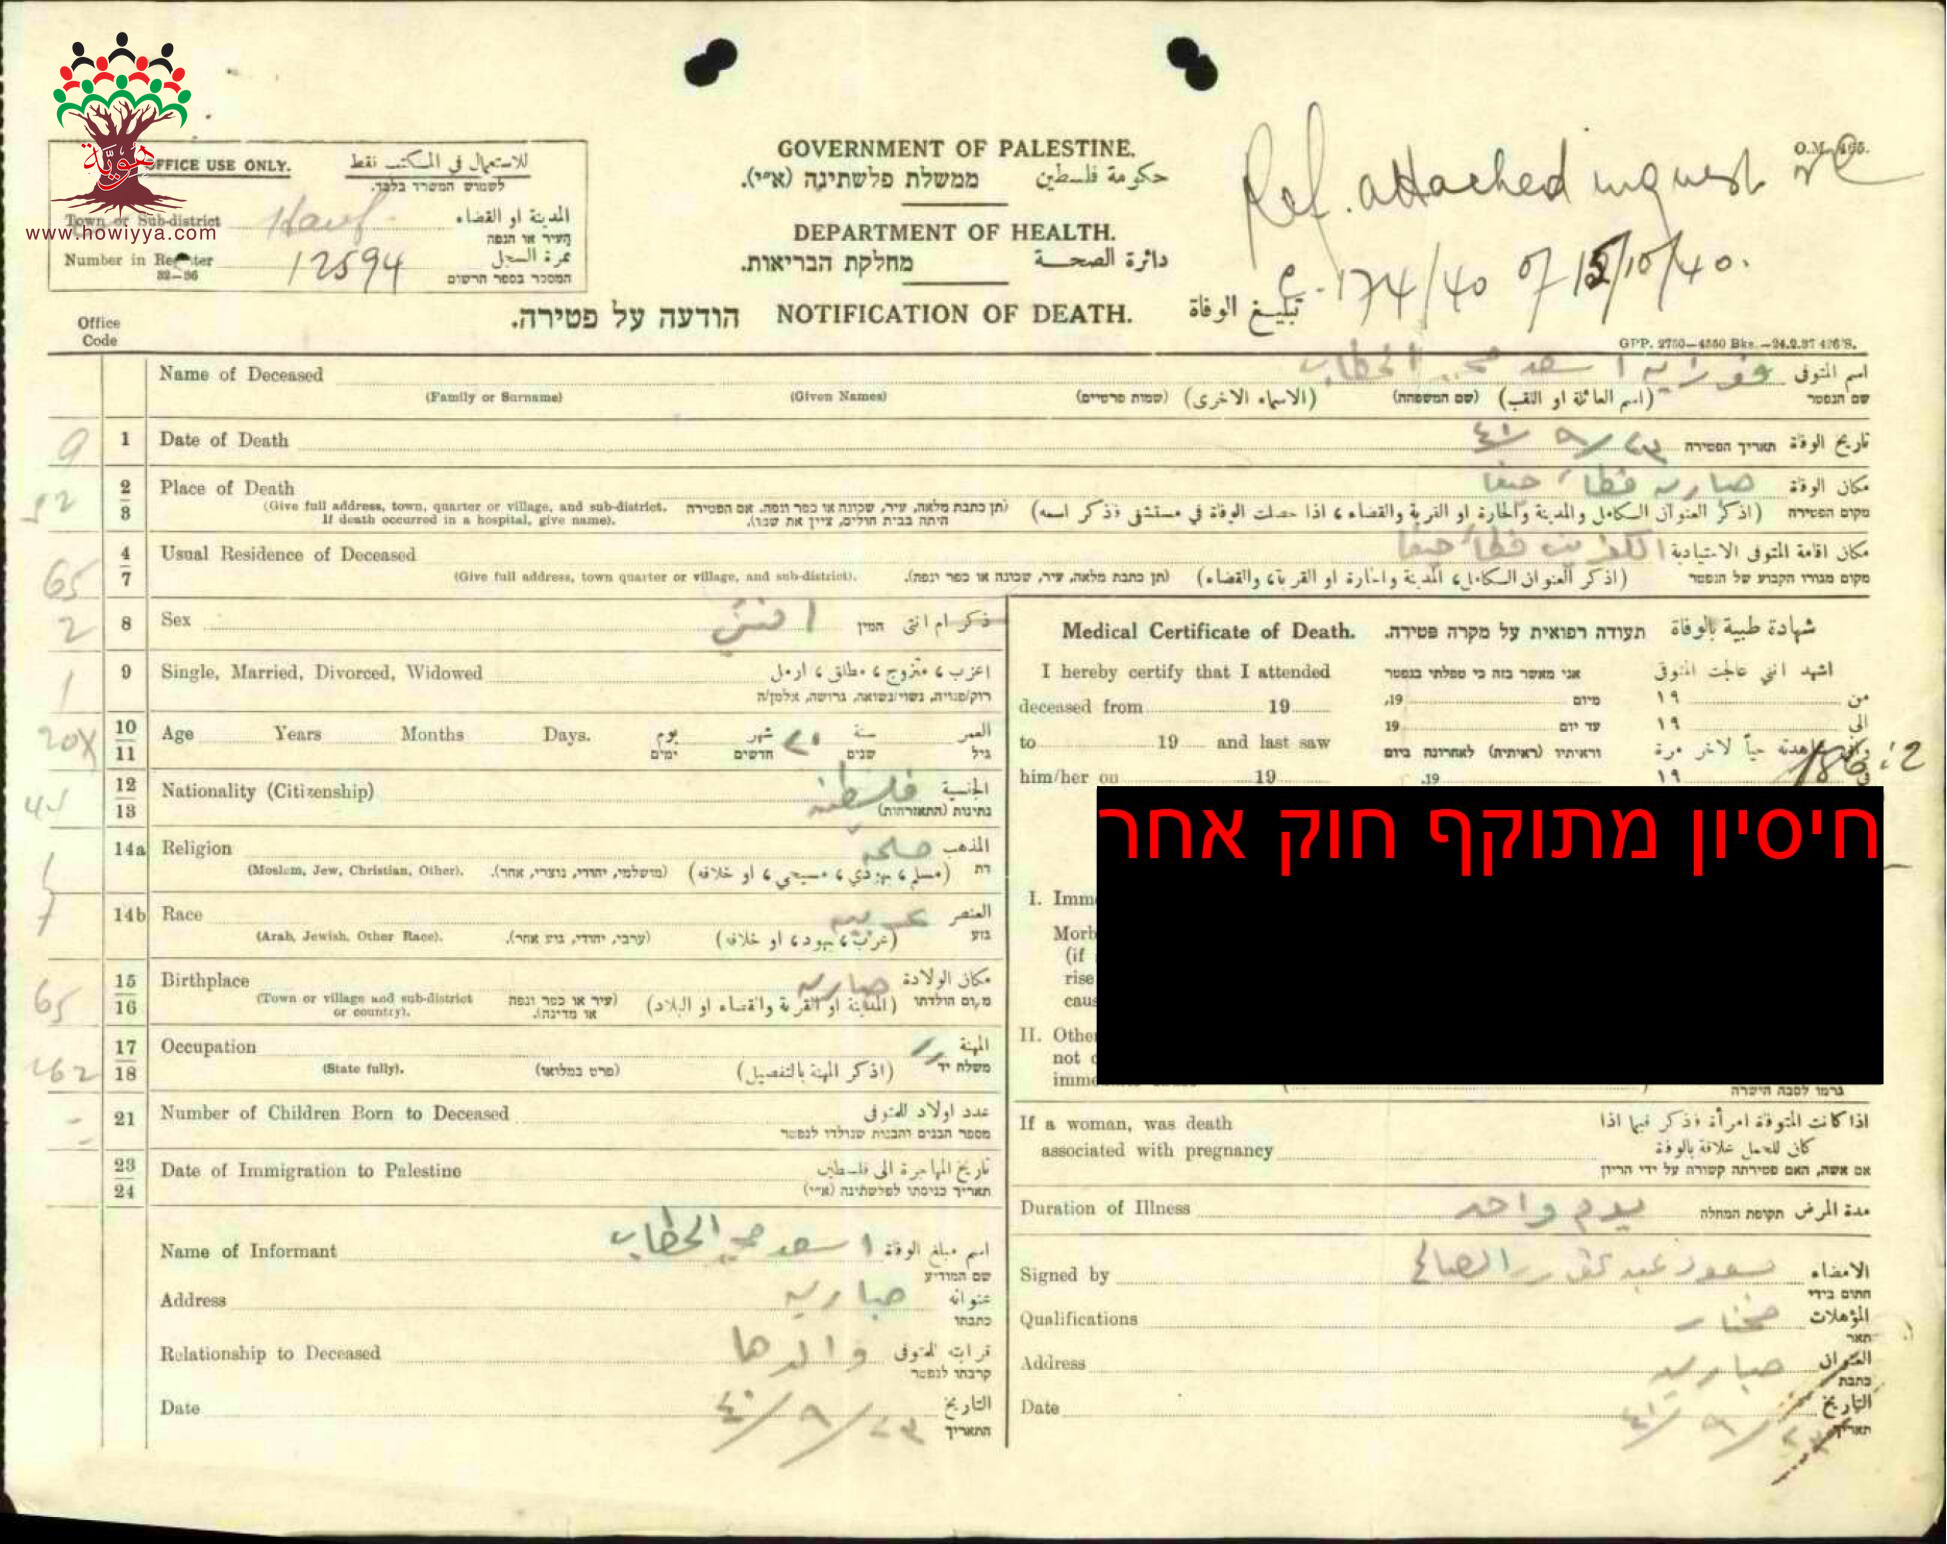 هويّة
www.howiyya.com
OFFICE USE ONLY. للاستعمال في المكتب فقط
לשמוש המשרד בלבד.
Town or Sub-district Haifa المدينة او القضاء
העיר או הנפה
Number in Register 12594 نمرة السجل
32–36 המספר בספר הרשום
GOVERNMENT OF PALESTINE.
ממשלת פלשתינה (א״י). حكومة فلسطين
DEPARTMENT OF HEALTH.
מחלקת הבריאות. دائرة الصحة
הודעה על פטירה. NOTIFICATION OF DEATH. تبليغ الوفاة
Ref. attached inquest
174/40 of 15/10/40.
GPP. 2750—4550 Bks.—24.2.37 426/S.
Office
Code
Name of Deceased اسعد محمد الخطاب اسم المتوفى
(Family or Surname) (Given Names) (שמות פרטיים) (الاسماء الاخرى) (שם המשפחה) (اسم العائلة او اللقب) שם הנפטר
9 1 Date of Death תאריך הפטירה تاريخ الوفاة
2 Place of Death صباريه قضاء حيفا مكان الوفاة
3 (Give full address, town, quarter or village, and sub-district. If death occurred in a hospital, give name). (תן כתבת מלאה, עיר, שכונה או כפר ונפה. אם הפטירה היתה בבית חולים, ציין את שמו). (اذكر العنوان الكامل والمدينة والحارة او القرية والقضاء، اذا حصلت الوفاة في مستشفى فذكر اسمه) מקום הפטירה
65 4 Usual Residence of Deceased قضاء حيفا مكان اقامة المتوفى الاعتيادية
7 (Give full address, town quarter or village, and sub-district). (תן כתבת מלאה, עיר, שכונה או כפר ונפה). (اذكر العنوان الكامل، المدينة والحارة او القرية، والقضاء) מקום מגוריו הקבוע של הנפטר
2 8 Sex انثى המין ذكر ام انثى
1 9 Single, Married, Divorced, Widowed اعزب، متزوج، مطلق، ارمل
רוק/פנויה, נשוי/נשואה, גרושה, אלמן/ה
10 Age Years Months Days. يوم شهر ٢٠ سنة العمر
11 ימים חדשים שנים גיל
12 Nationality (Citizenship) فلسطينيه الجنسية
13 נתינות (התאזרחות)
14a Religion المذهب
(Moslem, Jew, Christian, Other). (מושלמי, יהודי, נוצרי, אחר). (مسلم، يهودي، مسيحي، او خلافه) דת
7 14b Race عربيه العنصر
(Arab, Jewish, Other Race). (ערבי, יהודי, גזע אחר). (عرب، يهود، او خلافه) גזע
65 15 Birthplace صباريه مكان الولادة
16 (Town or village and sub-district or country). (עיר או כפר ונפה או מדינה). (المدينة او القرية والقضاء او البلاد) מקום הולדתו
17 Occupation المهنة
18 (State fully). (פרט במלואו) (اذكر المهنة بالتفصيل) משלח יד
21 Number of Children Born to Deceased عدد اولاد المتوفى
מספר הבנים והבנות שנולדו לנפטר
23 Date of Immigration to Palestine تاريخ المهاجرة الى فلسطين
24 תאריך כניסתו לפלשתינה (א״י)
Name of Informant اسعد محمد الخطاب اسم مبلغ الوفاة
שם המודיע
Address صباريه عنوانه
כתבתו
Relationship to Deceased والدها قرابته للمتوفى
קרבתו לנפטר
Date ٢٣/٩/٤٠ التاريخ
התאריך
Medical Certificate of Death. תעודה רפואית על מקרה פטירה. شهادة طبية بالوفاة
I hereby certify that I attended אני מאשר בזה כי טפלתי בנפטר اشهد انني عالجت المتوفى
deceased from 19 19, מיום ١٩ من
to 19 and last saw 19 עד יום ١٩ الى
וראיתיו (ראיתיה) לאחרונה ביום وانني شاهدته حياً لاخر مرة
him/her on 19 19. ١٩ في
חיסיון מתוקף חוק אחר
I. Imm
Morb
(if
rise
caus
II. Other
not
imm
גרמו לסבה הישרה
If a woman, was death اذا كانت المتوفاة امرأة فذكر فيما اذا
associated with pregnancy كان للحمل علاقة بالوفاة
אם אשה, האם פטירתה קשורה על ידי הריון
Duration of Illness يوم واحد תקופת המחלה مدة المرض
Signed by الامضاء
חתום בידי
Qualifications مختار المؤهلات
תאר
Address صباريه العنوان
כתבת
Date التاريخ
תאריך